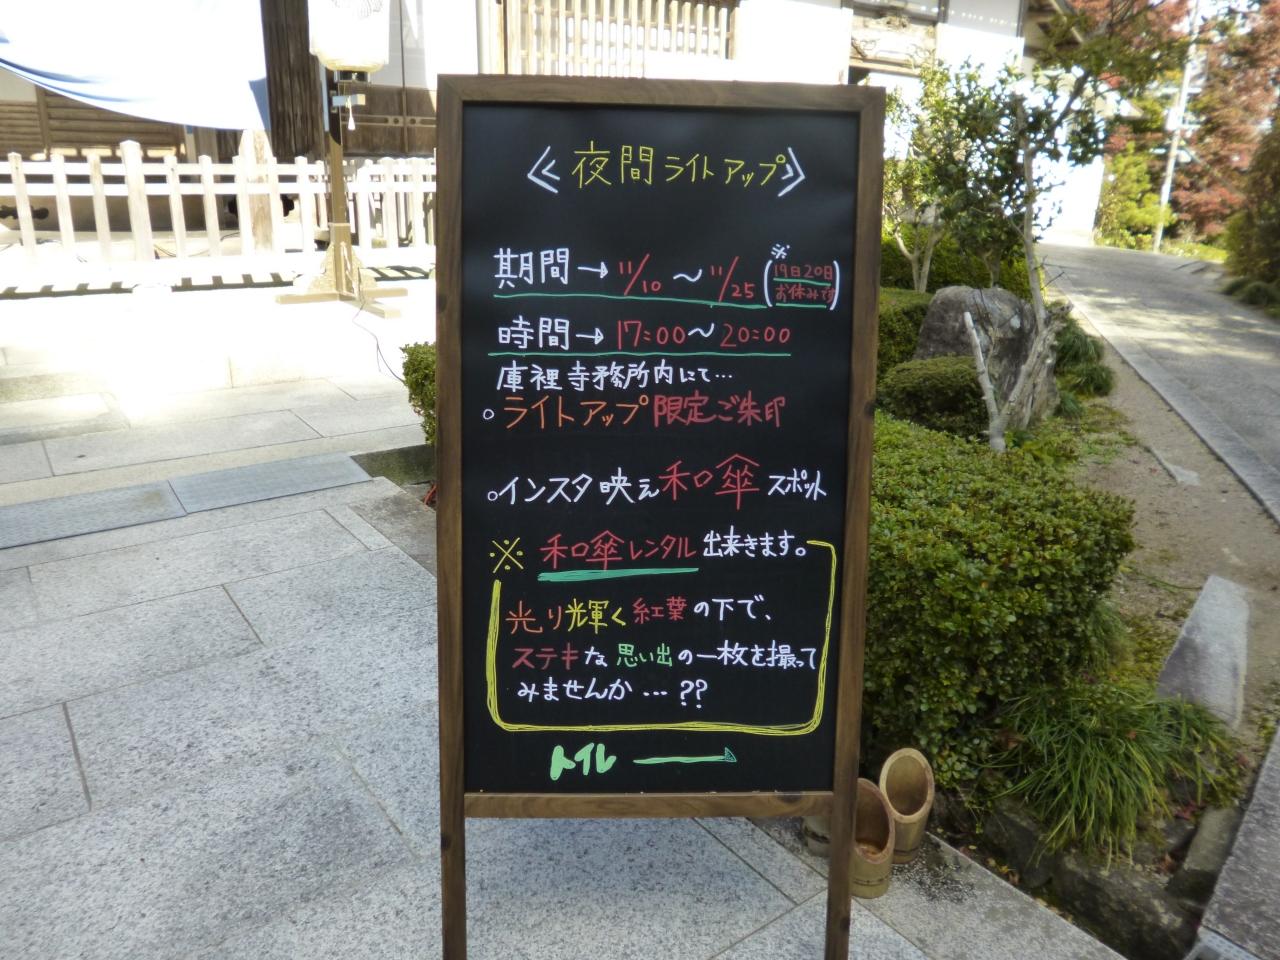 ≪夜間ライトアップ≫
期間→11/10〜11/25(※19日20日お休みです)
時間→17:00〜20:00
庫裡寺務所内にて…
○ライトアップ限定ご朱印
○インスタ映え和傘スポット
※和傘レンタル出来きます。
光り輝く紅葉の下で、
ステキな思い出の一枚を撮って
みませんか…??
トイレ→